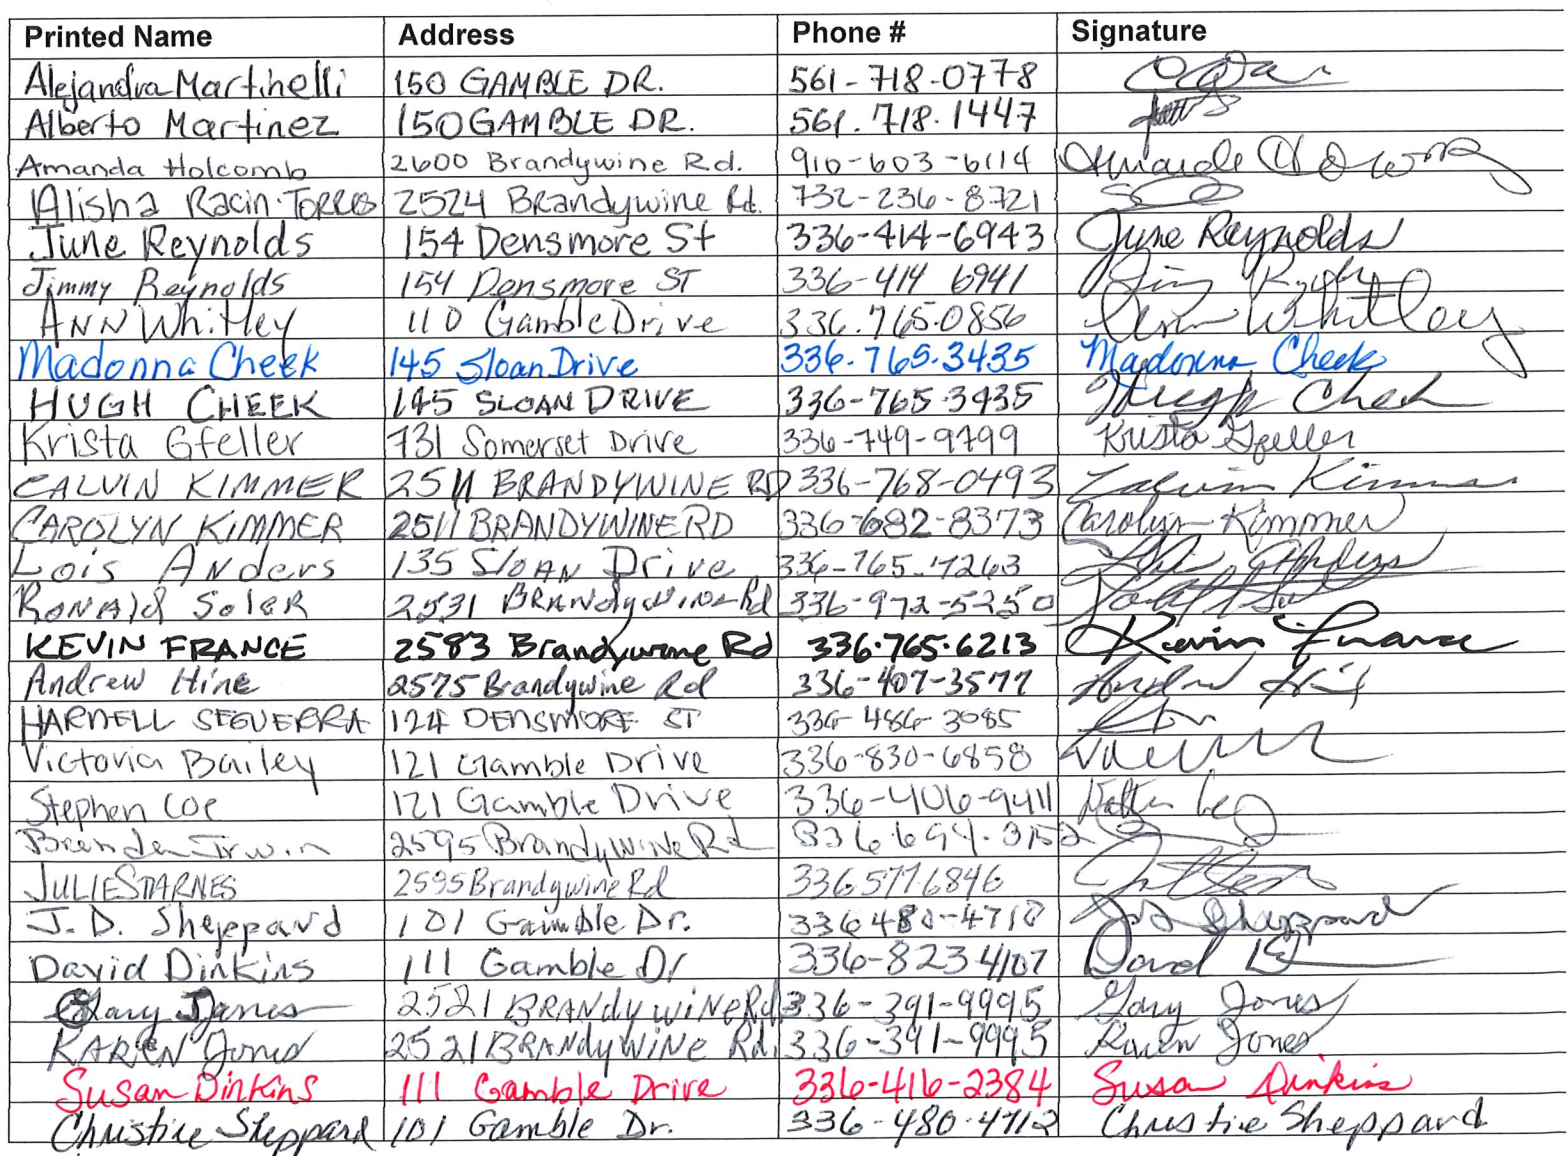 Printed Name Address Phone # Signature
Alejandra Martinelli 150 GAMBLE DR. 561-718-0778
Alberto Martinez 150 GAMBLE DR. 561.718.1447
Amanda Holcomb 2600 Brandywine Rd. 910-603-6114
Alisha Racin-Torres 2524 Brandywine Rd. 732-236-8721
June Reynolds 154 Densmore St 336-414-6943 June Reynolds
Jimmy Reynolds 154 Densmore ST 336-414 6941
ANN Whitley 110 Gamble Drive 336.765.0856 Ann Whitley
Madonna Cheek 145 Sloan Drive 336-765-3435 Madonna Cheek
HUGH CHEEK 145 SLOAN DRIVE 336-765-3435 Hugh Cheek
Krista Gfeller 731 Somerset Drive 336-749-9799 Krista Gfeller
CALVIN KIMMER 2511 BRANDYWINE RD 336-768-0493 Calvin Kimmer
CAROLYN KIMMER 2511 BRANDYWINE RD 336-682-8373 Carolyn Kimmer
Lois Anders 135 Sloan Drive 336-765-7263 Lois Anders
RONALD Soler 2531 Brandywine Rd 336-972-5250
KEVIN FRANCE 2583 Brandywine Rd 336.765.6213 Kevin France
Andrew Hine 2575 Brandywine Rd 336-407-3577
HARNELL SEGUERRA 124 DENSMORE ST 336-486-3085
Victoria Bailey 121 Gamble Drive 336-830-6858
Stephen Coe 121 Gamble Drive 336-406-9411
Brenda Irwin 2595 Brandywine Rd 336 694-3152
JULIE STARNES 2595 Brandywine Rd 336 577 6846
J. D. Sheppard 101 Gamble Dr. 336 480-4710 J D Sheppard
David Dinkins 111 Gamble Dr 336-823-4107 David
Gary Jones 2521 BRANdywiNe Rd 336-391-9995 Gary Jones
KAREN Jones 2521 BRANdywiNe Rd. 336-391-9995 Karen Jones
Susan Dinkins 111 Gamble Drive 336-416-2384 Susan Dinkins
Christine Sheppard 101 Gamble Dr. 336-480-4712 Christine Sheppard